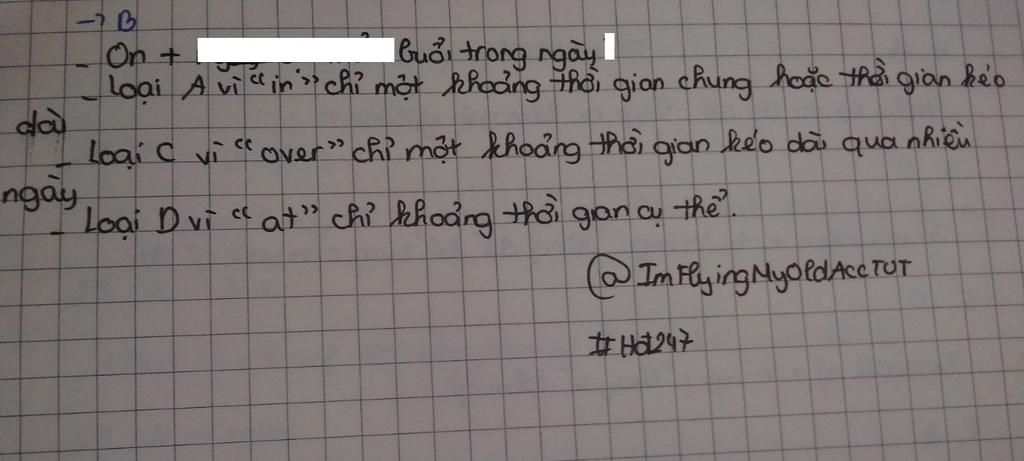 → B
- On + buổi trong ngày
- Loại A vì "in" chỉ một khoảng thời gian chung hoặc thời gian kéo
dài
- Loại C vì "over" chỉ một khoảng thời gian kéo dài qua nhiều
ngày
- Loại D vì "at" chỉ khoảng thời gian cụ thể.
@ImFlyingMyOldAccTUT
#Hd247